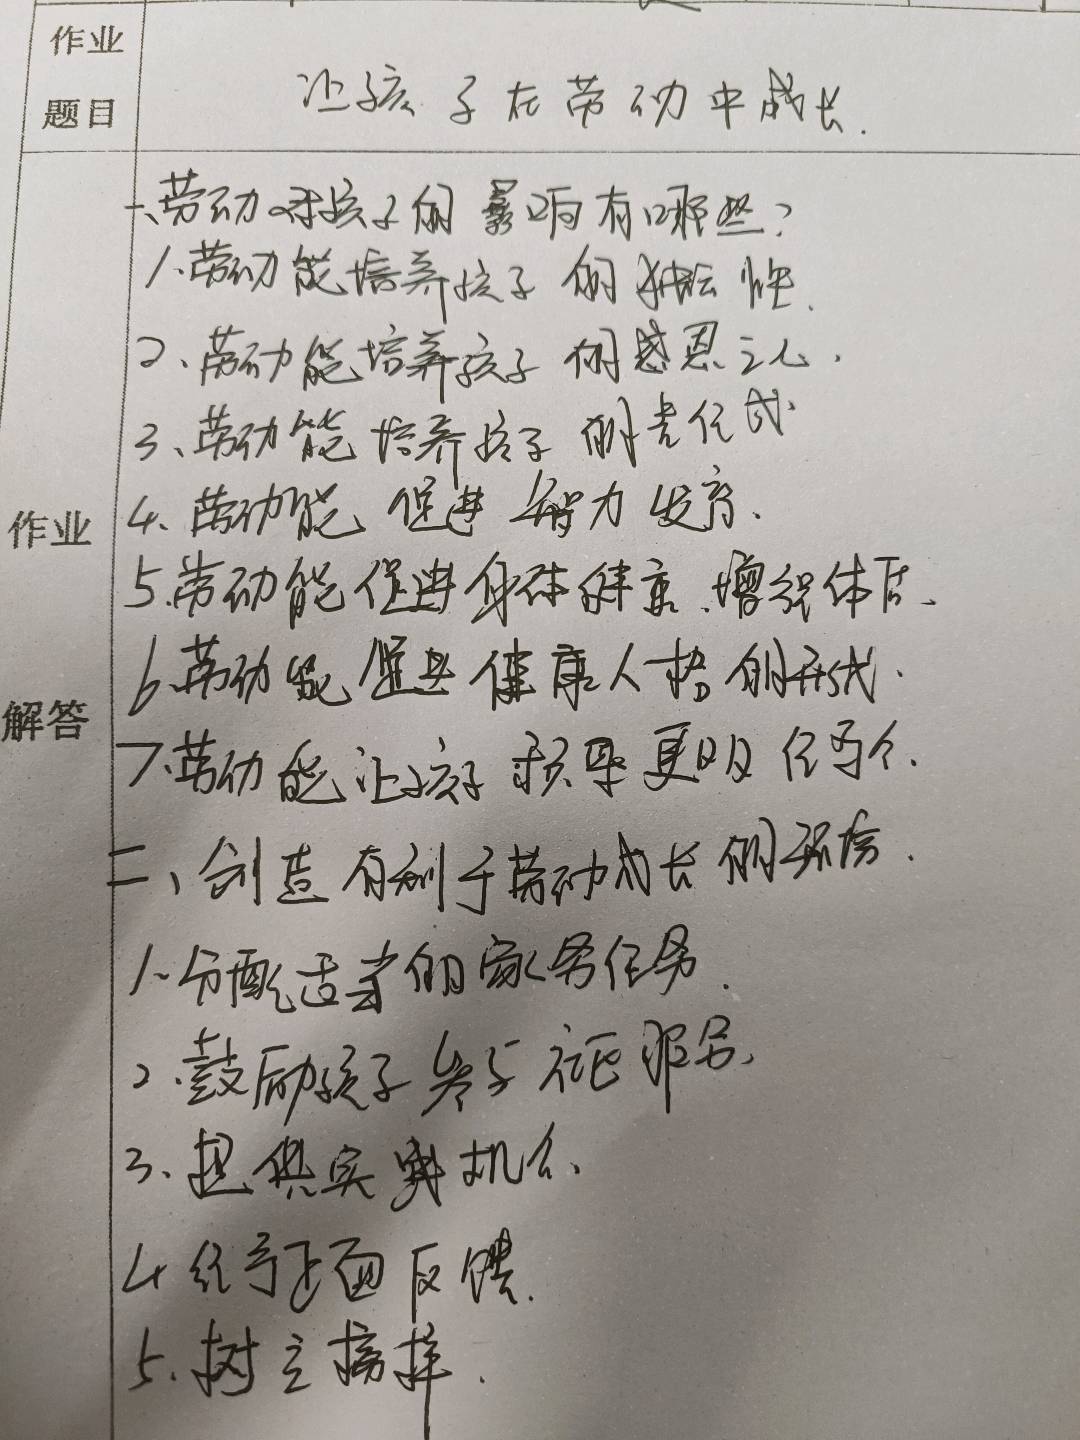 作业
题目
让孩子在劳动中成长.
一、劳动对孩子的影响有哪些?
1.劳动能培养孩子的独立性.
2、劳动能培养孩子的感恩之心.
3、劳动能培养孩子的责任感
4.劳动能促进智力发育.
5.劳动能促进身体健康.增强体质.
作业
6.劳动能促进健康人格的形成.
解答
7.劳动能让孩子积累更
二、创造有利于劳动成长的环境.
1.分配适当的家务任务.
2.鼓励孩子参与社区服务.
3、提供实践机会.
4.给予正面反馈.
5.树立榜样.